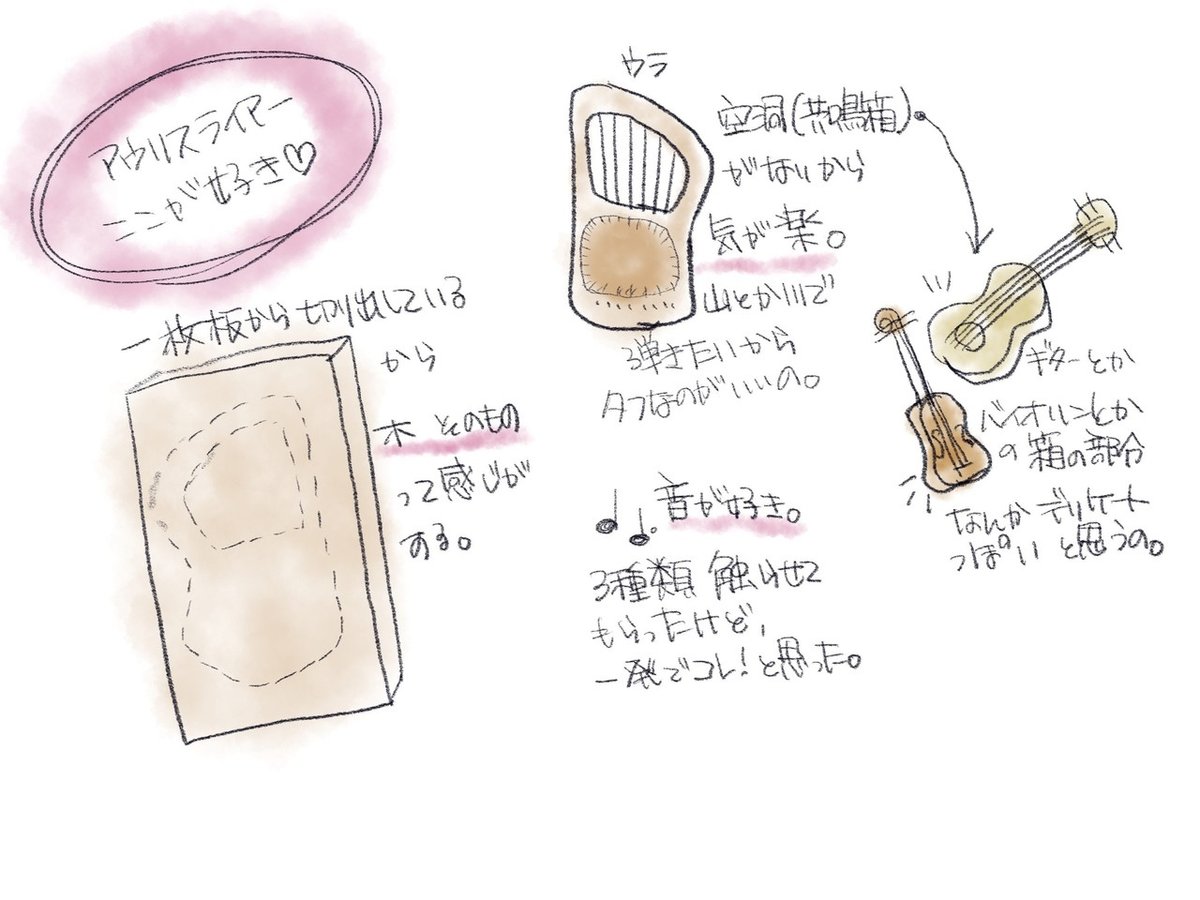 アウリスライアー
ここが好き♡
一枚板から切り出している
から
木 そのもの
って感じが
する。
ウラ
空洞(共鳴箱)
がないから
気が楽。
山とか川で
弾きたいから
タフなのがいいの。
ギターとか
バイオリンとか
の箱の部分
なんかデリケート
っぽいと思うの。
音が好き。
3種類 触らせて
もらったけど、
一発でコレ!と思った。